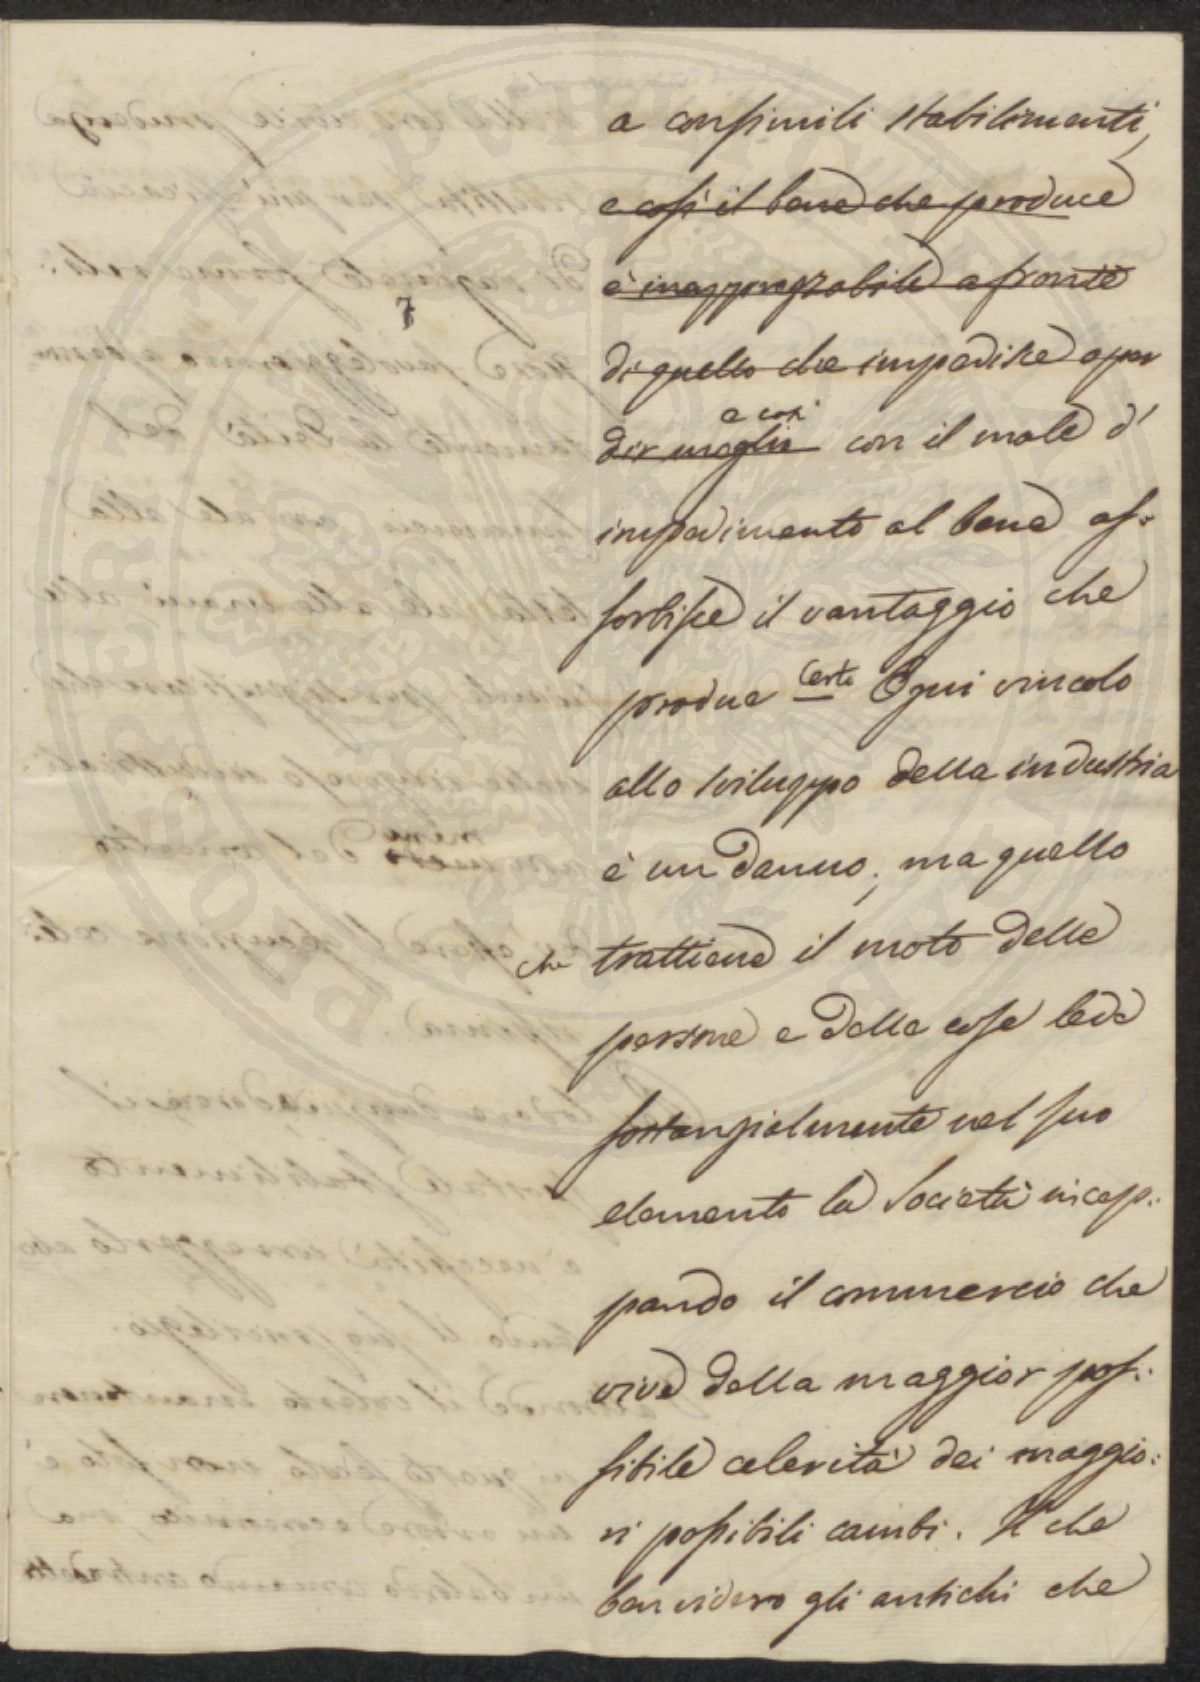 a consimili stabilimenti,
e così il bene che produce
è inapprezzabile a fronte
di quello che impedisce o per
dir meglio e così con il male d'
impedimento al bene as-
sorbisce il vantaggio che
produce Certo Ogni vincolo
allo sviluppo della industria
è un danno, ma quello
che trattiene il moto delle
persone e delle cose lede
sostanzialmente nel suo
elemento la Società incep:
pando il commercio che
vive della maggior pos:
sibile celerità dei maggio:
ri possibili cambi. Il che
ben videro gli antichi che
7